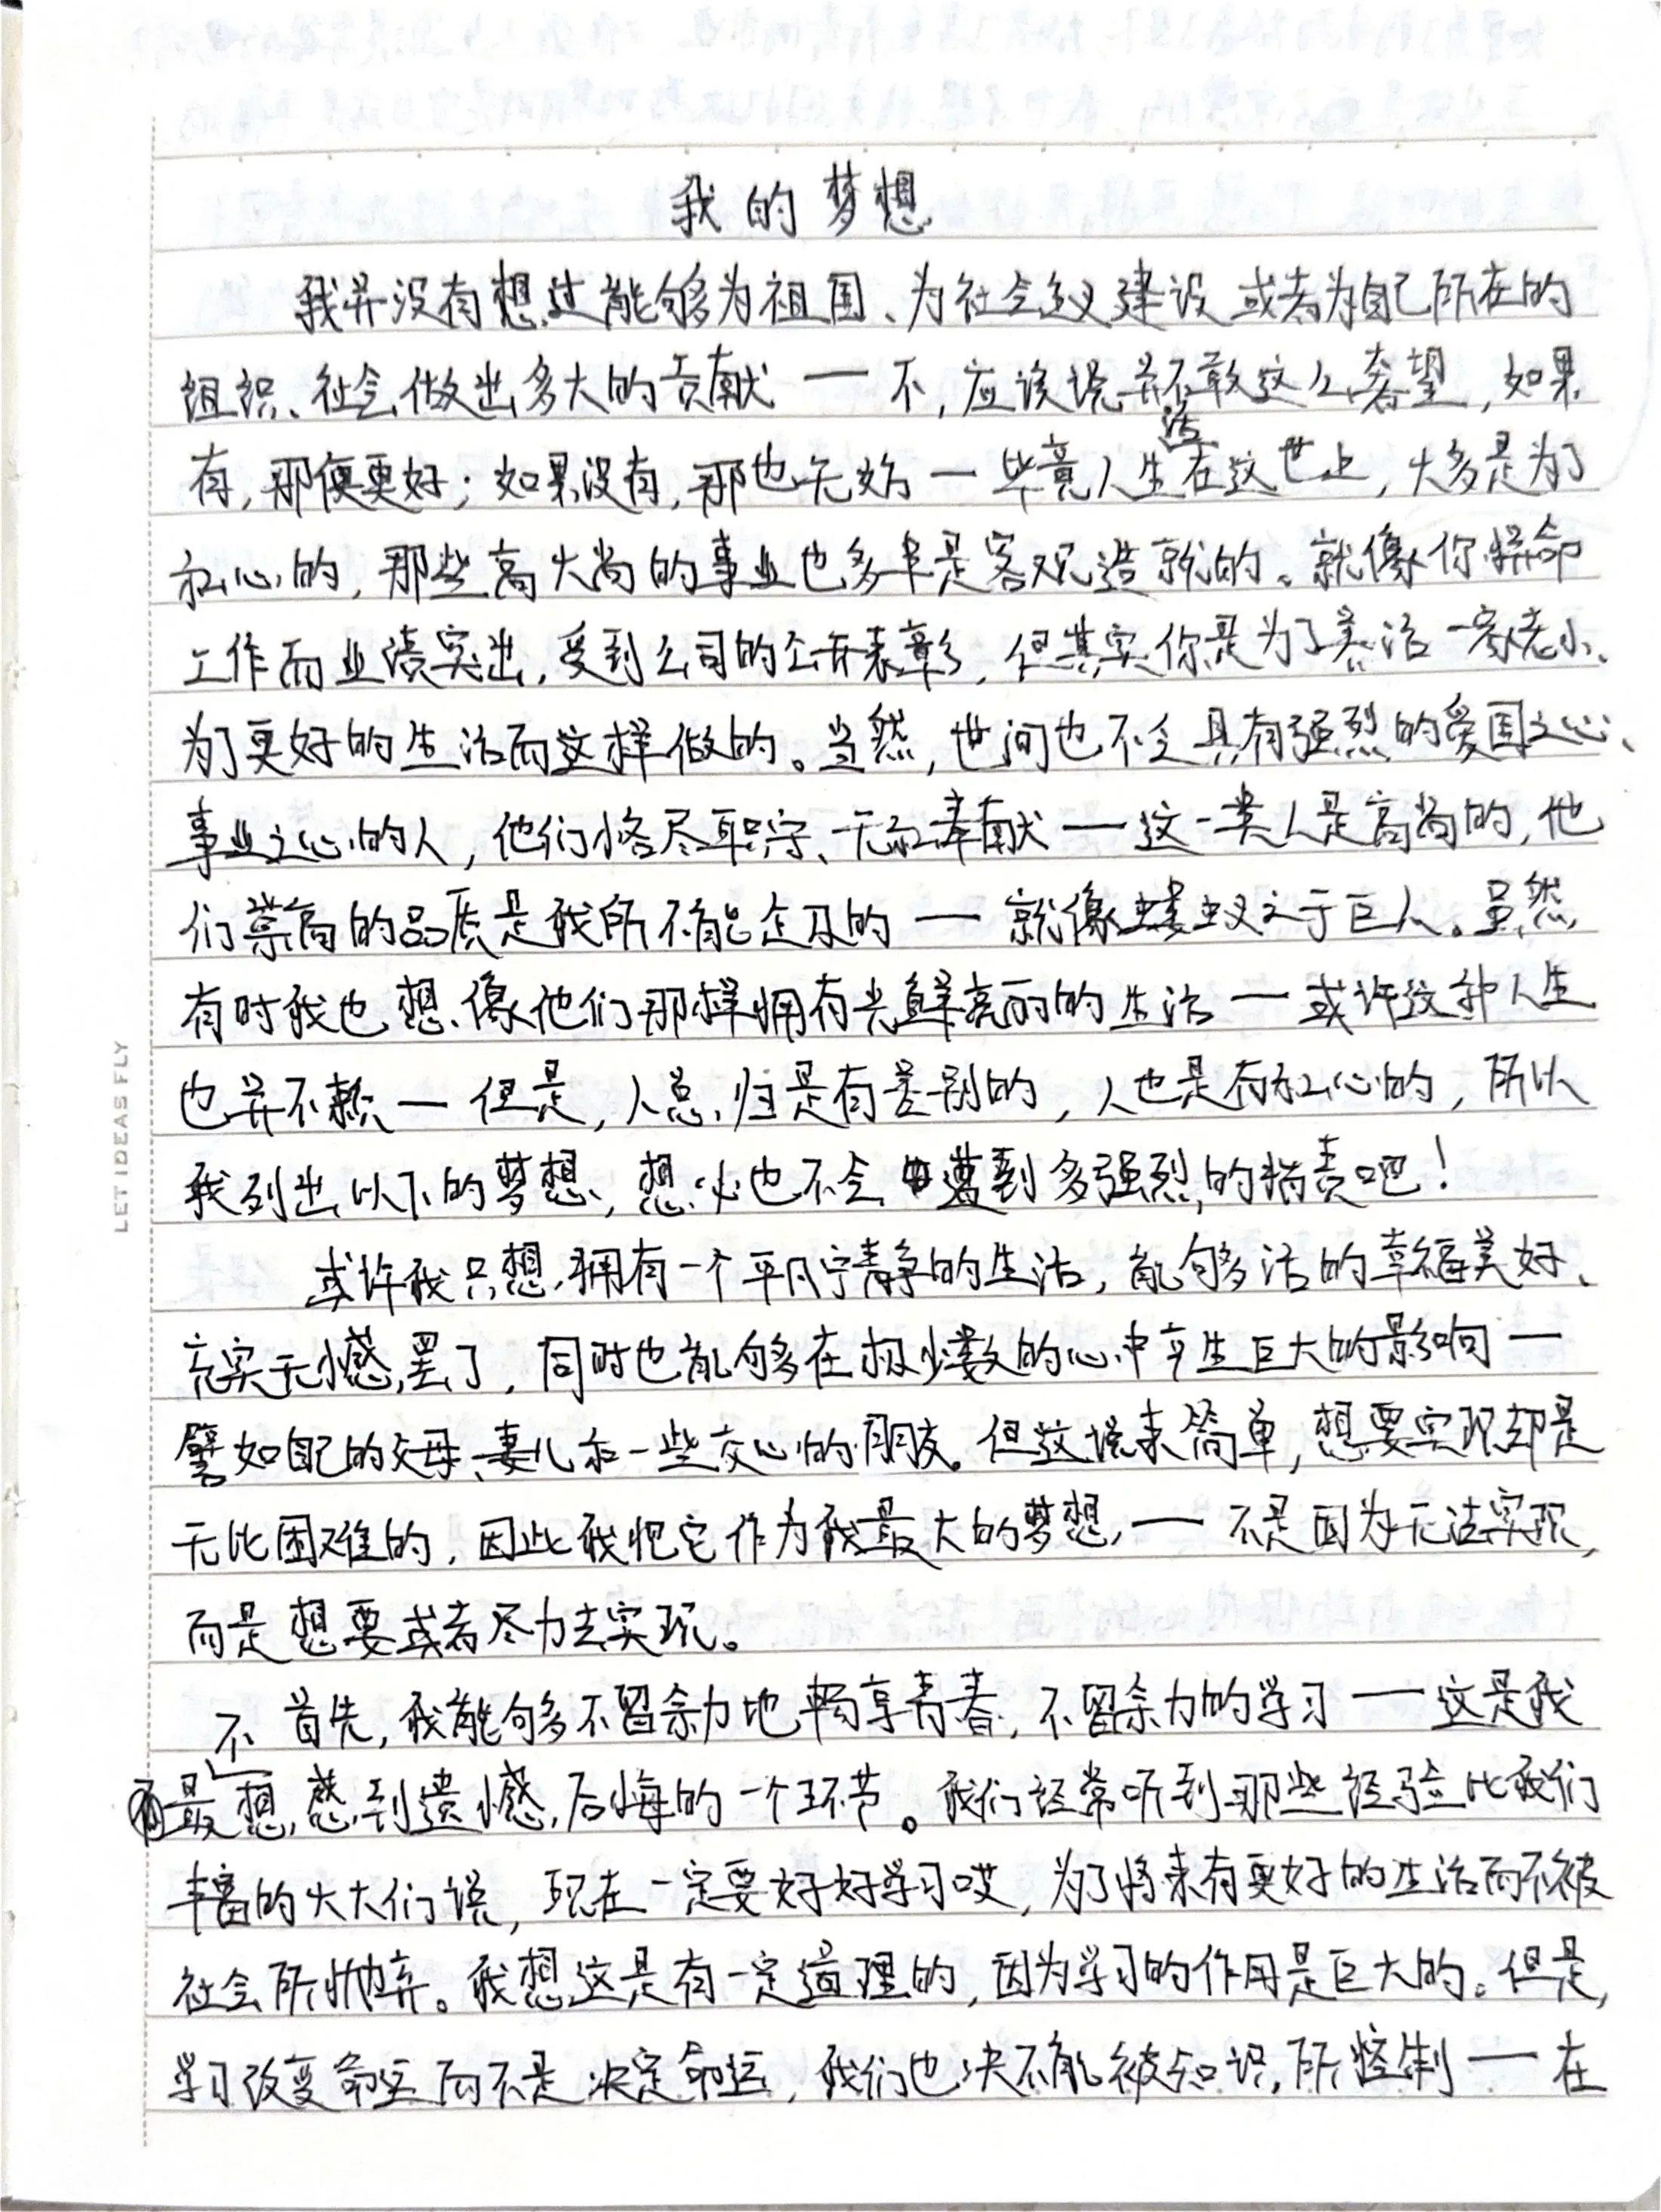 我的梦想
我并没有想过能够为祖国、为社会主义建设或者为自己所在的
组织、社会做出多大的贡献——不,应该说并不敢这么奢望,如果
有,那便更好;如果没有,那也无妨—毕竟人生活在这世上,大多是为了
私心的,那些高大尚的事业也多半是客观造就的。就像你拼命
工作而业绩突出,受到公司的公开表彰,但其实你是为了养活一家老小、
为了更好的生活而这样做的。当然,世间也不乏具有强烈的爱国之心、
事业之心的人,他们恪尽职守、无私奉献—这一类人是高尚的,他
们崇高的品质是我所不能企及的——就像蝼蚁之于巨人。虽然
有时我也想像他们那样拥有光鲜亮丽的生活—或许这种人生
也并不赖—但是,人总归是有差别的,人也是有私心的,所以
我列出以下的梦想,想必也不会遭到多强烈的指责吧!
或许我只想拥有一个平凡宁静的生活,能够活的幸福美好、
充实无憾罢了,同时也能够在极少数的心中产生巨大的影响—
譬如自己的父母、妻儿和一些交心的朋友。但这说来简单,想要实现却是
无比困难的,因此我把它作为我最大的梦想,——不是因为无法实现,
而是想要或者尽力去实现。
首先,我能够不留余力地畅享青春,不留余力的学习——这是我
最不想感到遗憾,后悔的一个环节。我们经常听到那些经验比我们
丰富的大大们说,现在一定要好好学习哎,为了将来有更好的生活而不被
社会所抛弃。我想这是有一定道理的,因为学习的作用是巨大的。但是,
学习改变命运而不是决定命运,我们也决不能被知识所控制——在
LET IDEAS FLY